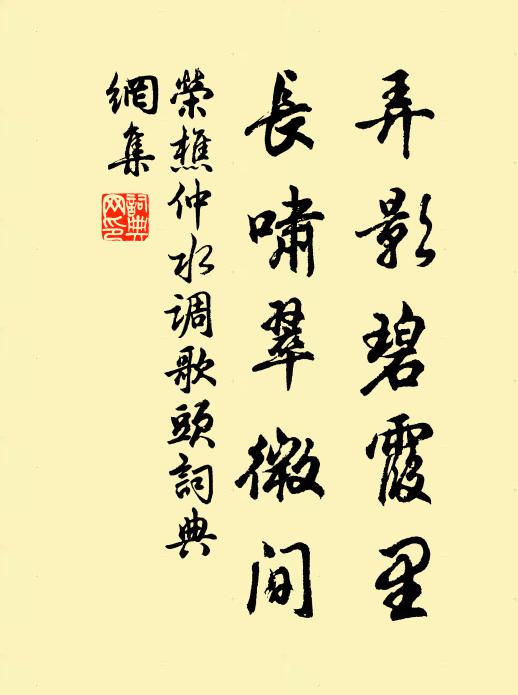 弄影碧霞里
長嘯翠微间
榮樵仲水调歌頭詞典
網集
詞典
网印